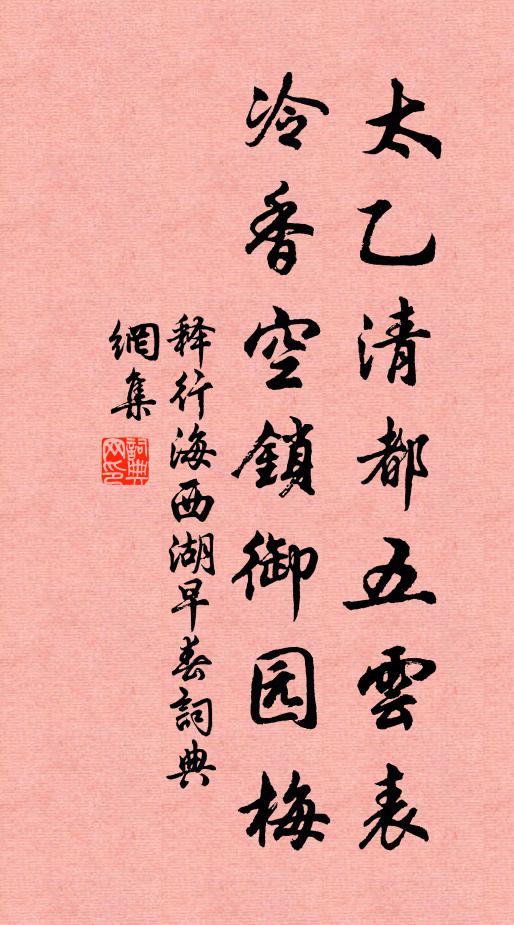 太乙清都五雲表
冷香空鎖御园梅
释行海西湖早春詞典
網集
詞典
网印